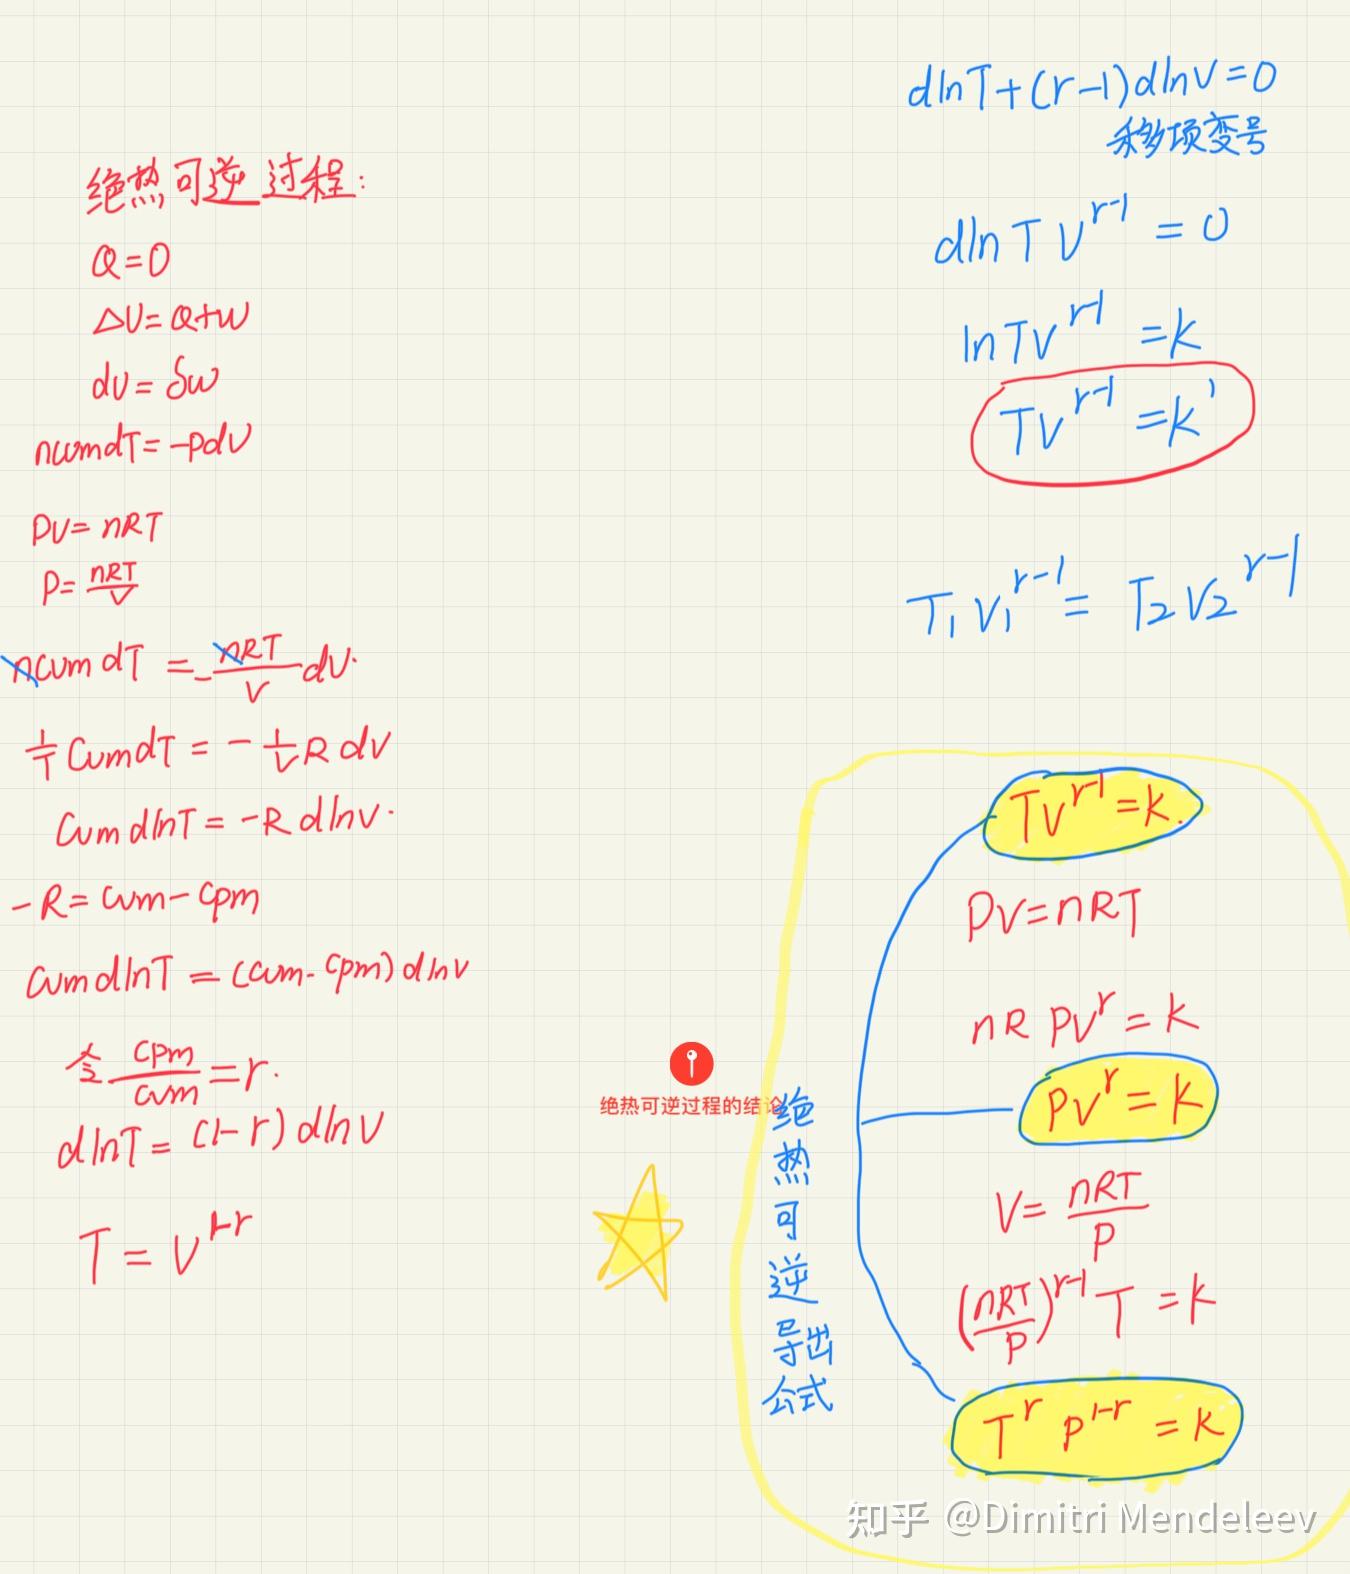 绝热可逆过程:
Q=0
ΔU=Q+W
dU=δW
nCvmdT=-PdV
PV=nRT
P=nRT/V
nCvmdT=-nRT/V dV.
1/T CvmdT=-1/V R dV
CvmdlnT=-R dlnV.
-R=Cvm-Cpm
CvmdlnT=(Cvm-Cpm)dlnV
令 Cpm/Cvm=r.
dlnT=(1-r)dlnV
T=V^1-r
dlnT+(r-1)dlnV=0
移项变号
dlnTV^r-1=0
lnTV^r-1=k
TV^r-1=k'
T₁V₁^r-1=T₂V₂^r-1
绝热可逆过程的结论
绝热可逆导出公式
TV^r-1=k.
PV=nRT
nR PV^r=k
PV^r=k
V=nRT/P
(nRT/P)^r-1 T=k
T^r P^1-r=k
知乎 @Dimitri Mendeleev